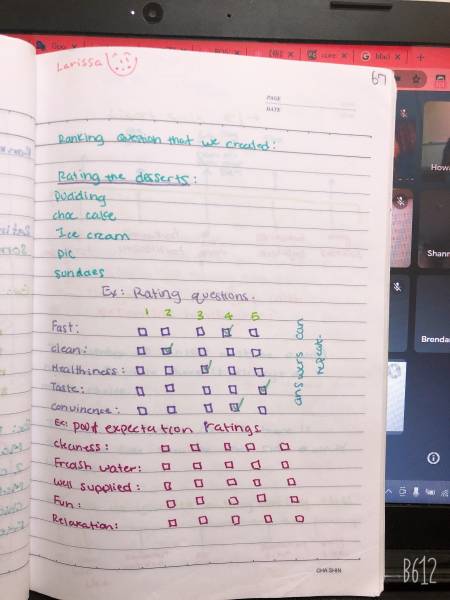 Larissa
67
PAGE
DATE
Ranking Question that we created:
Rating the desserts:
Pudding
choc cake
Ice cream
Pie
Sundaes
Ex: Rating questions.
1 2 3 4 5
Fast:
clean:
Healthiness:
Taste:
Convinence:
answers can
repeat.
Ex: pool expectation ratings
Cleaness:
Freash water:
Well supplied:
Fun:
Relaxation:
CHA SHIN
Howa
Shann
Brenda
B612